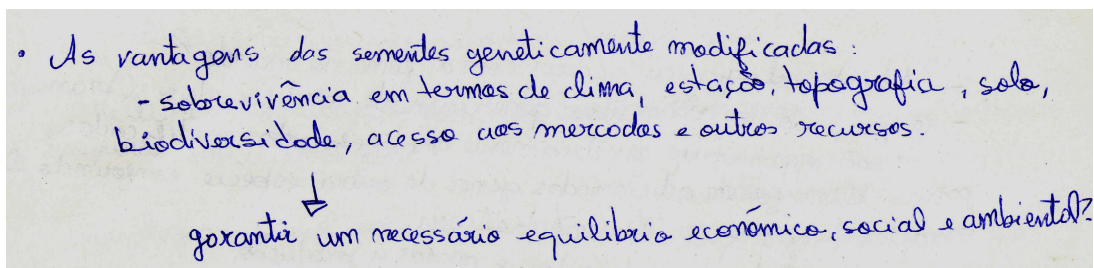 • As vantagens das sementes geneticamente modificadas:
- sobrevivência em termos de clima, estação, topografia, solo,
biodiversidade, acesso aos mercados e outros recursos.
↓
garantir um necessário equilíbrio económico, social e ambiental?